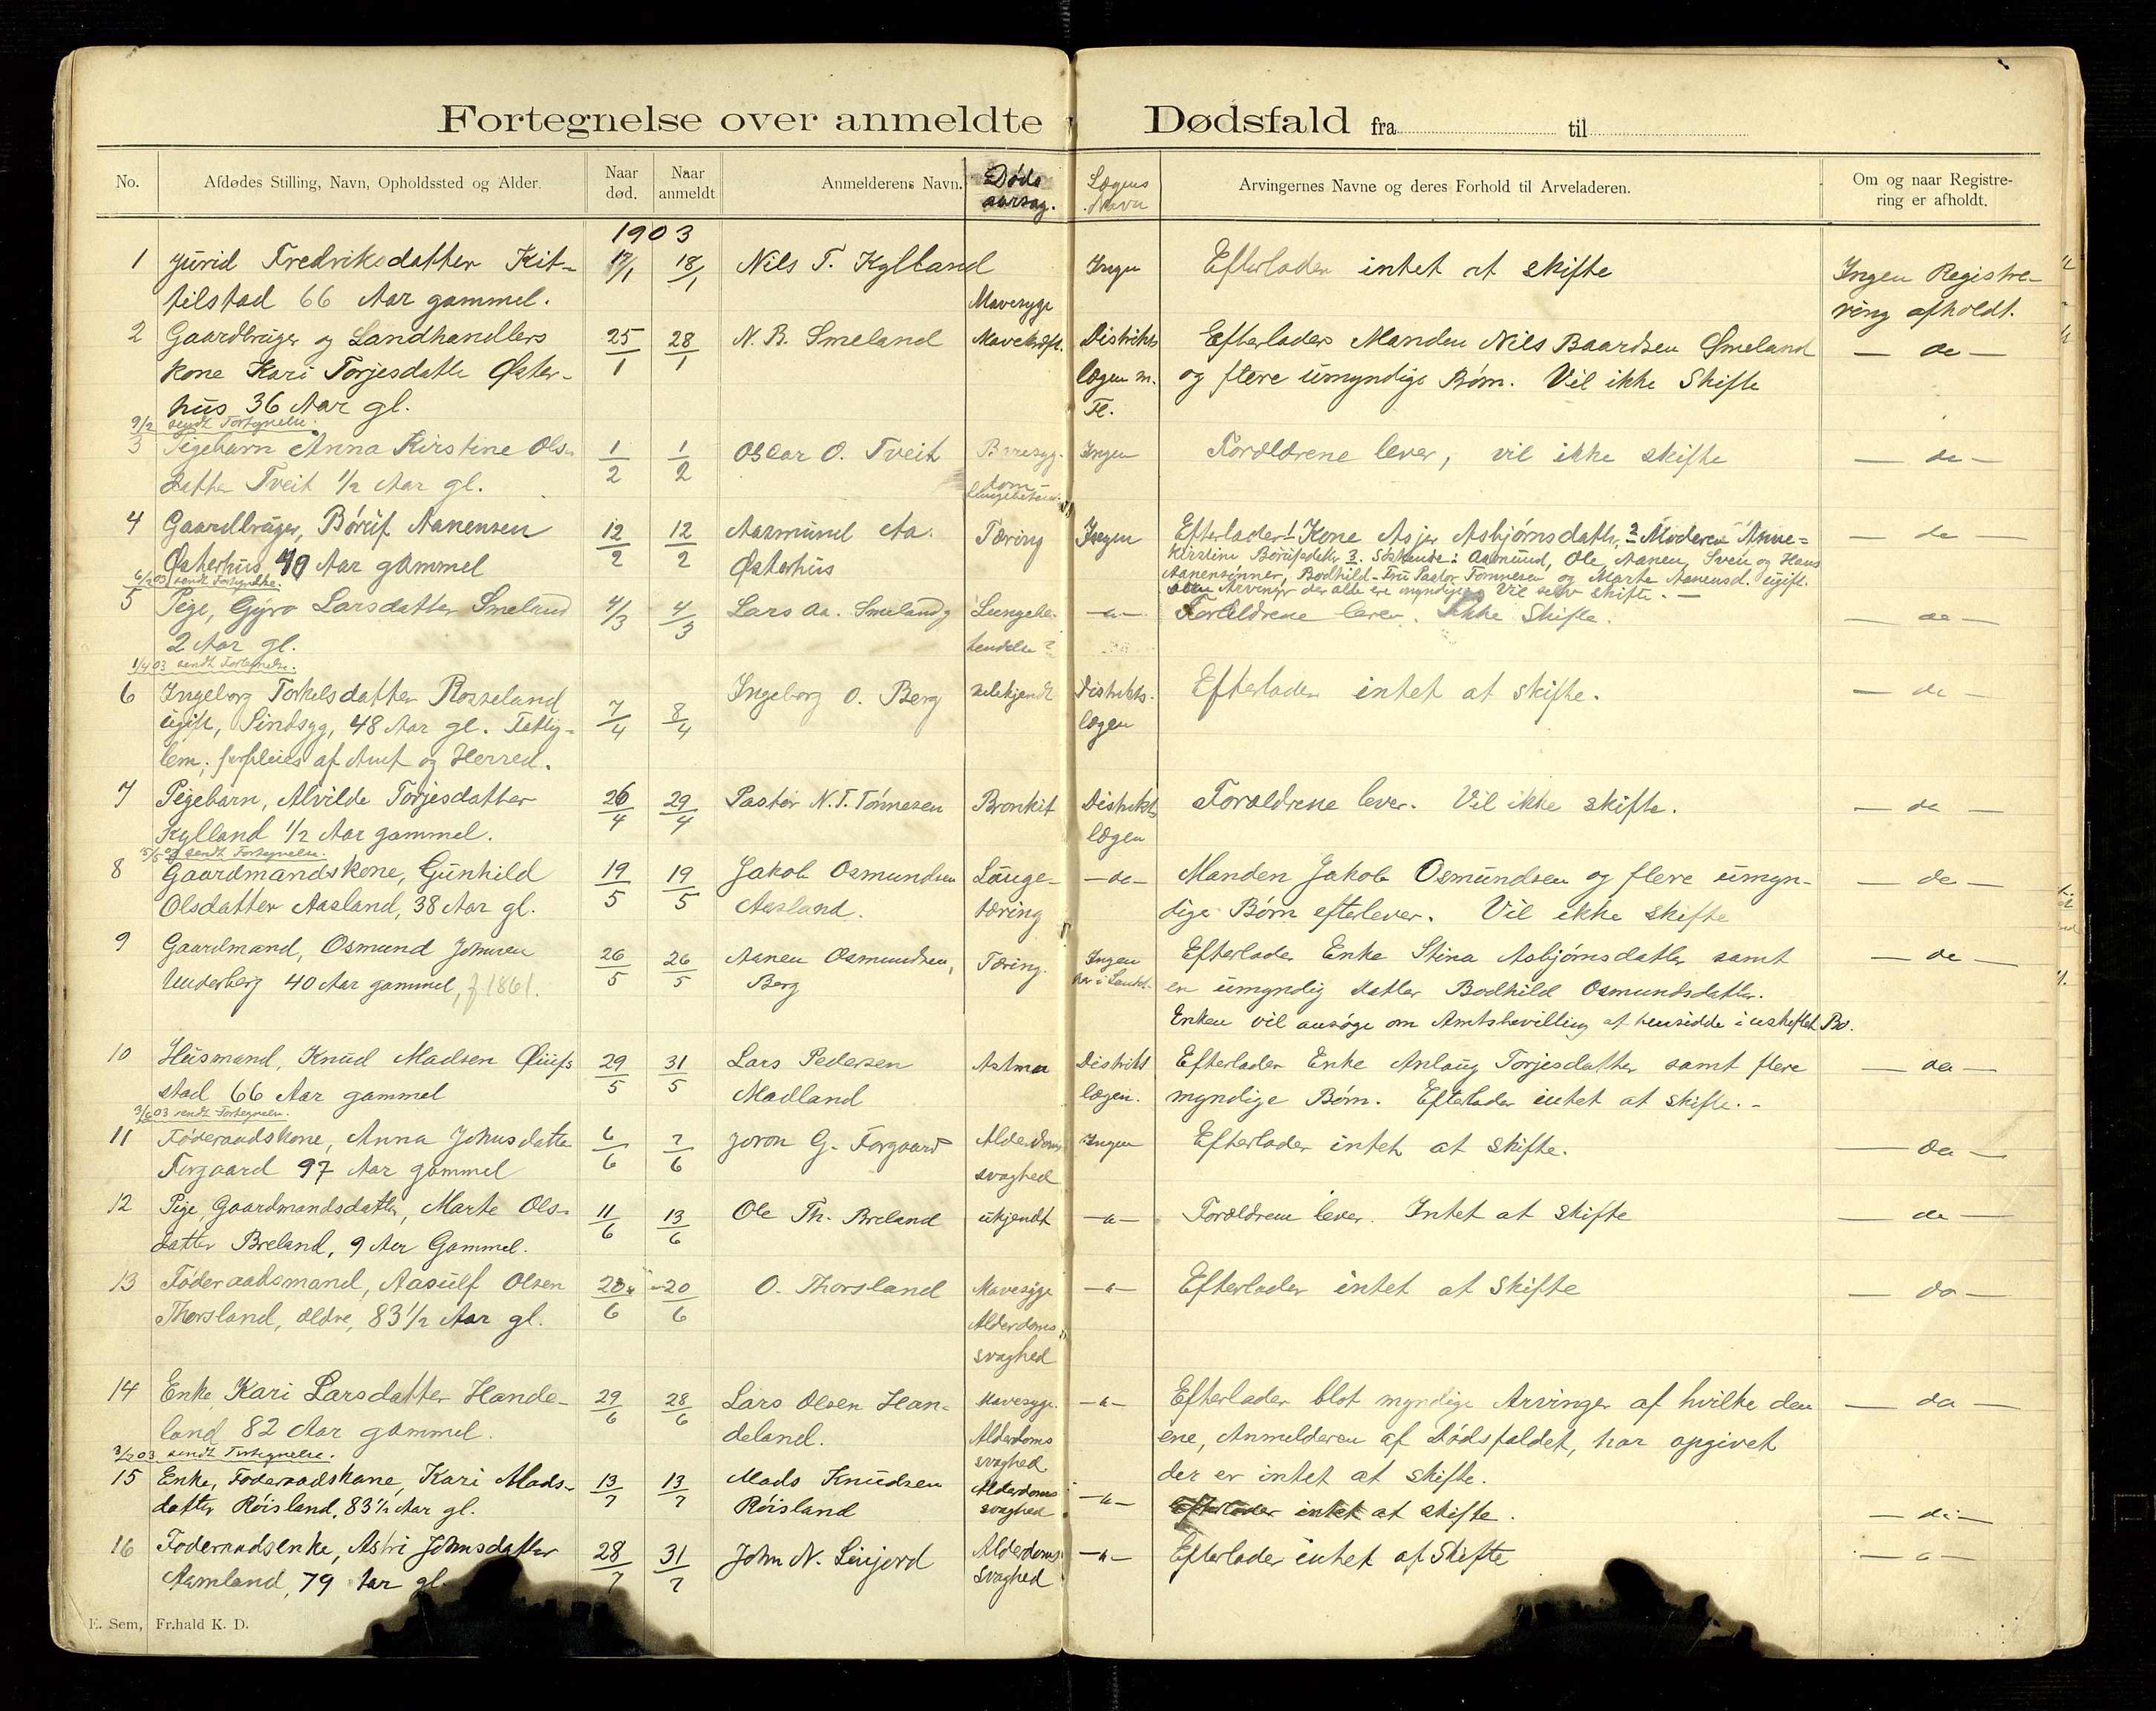 Fortegnelse over anmeldte Dødsfald fra til
No. Afdødes Stilling, Navn, Opholdssted og Alder. Naar død. Naar anmeldt Anmelderens Navn. Døds aarsag. Lægens Navn Arvingernes Navne og deres Forhold til Arveladeren. Om og naar Registrering er afholdt.
1903
1 Jurid Fredriksdatter Kit- 17/1 18/1 Nils T. Kylland Ingen Efterlader intet at skifte Ingen Registre-
tilstad 66 Aar gammel. Mavesyge ring afholdt.
2 Gaardbruger og Landhandlers 25/1 28/1 N. B. Smeland Mavekræft. Distrikts Efterlader Manden Nils Baardsen Smeland — do —
kone Kari Torjesdatter Øster- lægen m. og flere umyndige Børn. Vil ikke Skifte
hus 36 Aar gl. Fl.
9/2 sendt Fortegnelse.
3 Pigebarn Anna Kirstine Ols- 1/2 1/2 Oscar O. Tveit Ingen Forældrene lever, vil ikke skifte — do —
datter Tveit 1/2 Aar gl.
4 Gaardbruger, Børuf Aanensen 12/2 12/2 Aasmund Aa. Tæring Ingen Efterlader 1 Kone Asjer Asbjørnsdatter, 2 Moderen Anne- — do —
Østerhus, 40 Aar gammel Østerhus Kirstine Børufsdatter 3. Søskende: Aasmund, Ole, Aanen, Sven og Hans
Aanensønner, Bodhild - Fru Pastor Tønnesen og Marte Aanensd. ugift.
6/2 03 sendt Fortegnelse. som Arvinger der alle ere myndige. Vil selv skifte. —
5 Pige, Gyro Larsdatter Smeland 4/3 4/3 Lars Aa. Smeland Lungebe- — " — Forældrene lever. Ikke Skifte. — do —
2 Aar gl. tendelse?
1/4 03 sendt Fortegnelse.
6 Ingeborg Torkelsdatter Rosseland 7/4 8/4 Ingeborg O. Berg Distrikts- Efterlader intet at skifte. — do —
ugift, Sindsyg, 48 Aar gl. Fattig- lægen
lem; forpleies af Amt og Herred.
7 Pigebarn, Alvilde Torjesdatter 26/4 29/4 Pastor N. T. Tønnesen Bronkit Distrikts Forældrene lever. Vil ikke skifte. — do —
Kylland 1/2 Aar gammel. lægen
15/5 03 sendt Fortegnelse.
8 Gaardmandskone, Gunhild 19/5 19/5 Jakob Osmundsen Lunge- — do — Manden Jakob Osmundsen og flere umyn- — do —
Olsdatter Aasland, 38 Aar gl. Aasland. tæring dige Børn efterlever. Vil ikke skifte
9 Gaardmand, Osmund Johnsen 26/5 26/5 Aanen Osmundsen, Tæring. Ingen Efterlader Enke Stina Asbjørnsdatter samt — do —
Underberg 40 Aar gammel, f. 1861. Berg en umyndig datter Bodhild Osmundsdatter.
Enken vil ansøge om Amtsbevilling at hensidde i uskiftet Bo.
10 Husmand, Knud Madsen 29/5 31/5 Lars Pedersen Astma Distrikts Efterlader Enke Anlaug Torjesdatter samt flere — do —
stad 66 Aar gammel Madland lægen. myndige Børn. Efterlader intet at skifte. -
3/6 03 sendt Fortegnelse.
11 Føderaadskone, Anna Johnsdatter 6/6 7/6 Joron G. Forgaard Alderdoms- Ingen Efterlader intet at skifte. — do —
Forgaard 97 Aar gammel svaghed
12 Pige Gaardmandsdatter, Marte Ols- 11/6 13/6 Ole Th. Breland ukjendt — " — Forældrene lever. Intet at skifte — do —
datter Breland, 9 Aar Gammel.
13 Føderaadsmand, Aasulf Olsen 20/6 20/6 O. Thorsland Mavesyge — " — Efterlader intet at skifte — do —
Thorsland, ældre, 83 1/2 Aar gl. Alderdoms-
svaghed
14 Enke Kari Larsdatter Hande- 29/6 28/6 Lars Olsen Han- Mavesyge. — " — Efterlader blot myndige Arvinger af hvilke den — do —
land 82 Aar gammel. deland. Alderdoms ene, Anmelderen af Dødsfaldet, har opgivet
3/7 03 sendt Fortegnelse. svaghed der er intet at skifte.
15 Enke, Føderaadskone, Kari Mads- 13/7 13/7 Mads Knudsen Alderdoms — " — Efterlader intet at skifte. — do —
datter Røisland, 83 1/2 Aar gl. Røisland svaghed
16 Føderaadsenke, Astri Johnsdatter 28/7 31/7 John N. Linjord Alderdoms- — " — Efterlader intet at Skifte — " —
Aamland, 79 Aar gl. svaghed
E. Sem, Fr.hald K. D.